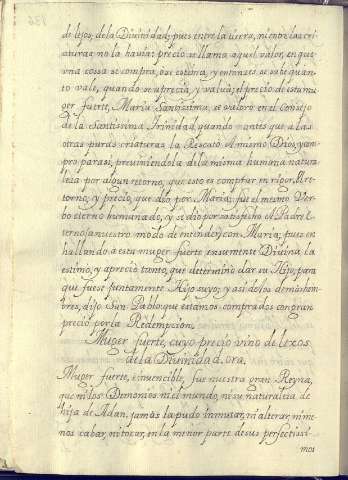 de lejos, de la Divinidad; pues entre la tierra, ni entre las cri-
aturas no la havia: precio se llama aquel valor, en que
una cossa se compra, ò se estima, y entonzes se sabe quan-
to vale, quando se aprecia, y valua; el precio de esta mu-
ger fuerte, Maria Santissima, se valorò en el Consejo
de la Santissima Trinidad, quando antes que a las
otras puras criaturas la Rescatò el mismo Dios, y com-
prò para si, previniendola de la misma humana natura-
leza por algun retorno, que esto es comprar en rigor. El re-
torno, y precio, que diò por Maria, fue el mesmo Ver-
bo eterno humanado, y se diò por satisfecho el Padre E-
terno (a nuestro modo de entender) con Maria; pues en
hallando a esta muger fuerte en su mente Divina la
estimò, y apreciò tanto, que determinò dar su Hijo, para
que fuese juntamente Hijo suyo; y asi de los demas hom-
bres, dijo San Pablo que estamos comprados con gran
precio por la Redempcion.
Muger fuerte, cuyo precio vino de lexos
de la Divinidad, ora.
Muger fuerte, è invencible, fue nuestra gran Reyna,
que ni los Demonios ni el mundo, ni su naturaleza de
hija de Adan, jamas la pudo inmutar, ni alterar, ni me-
nos cabar, ni tocar, en la menor parte de sus perfectissi-
mos